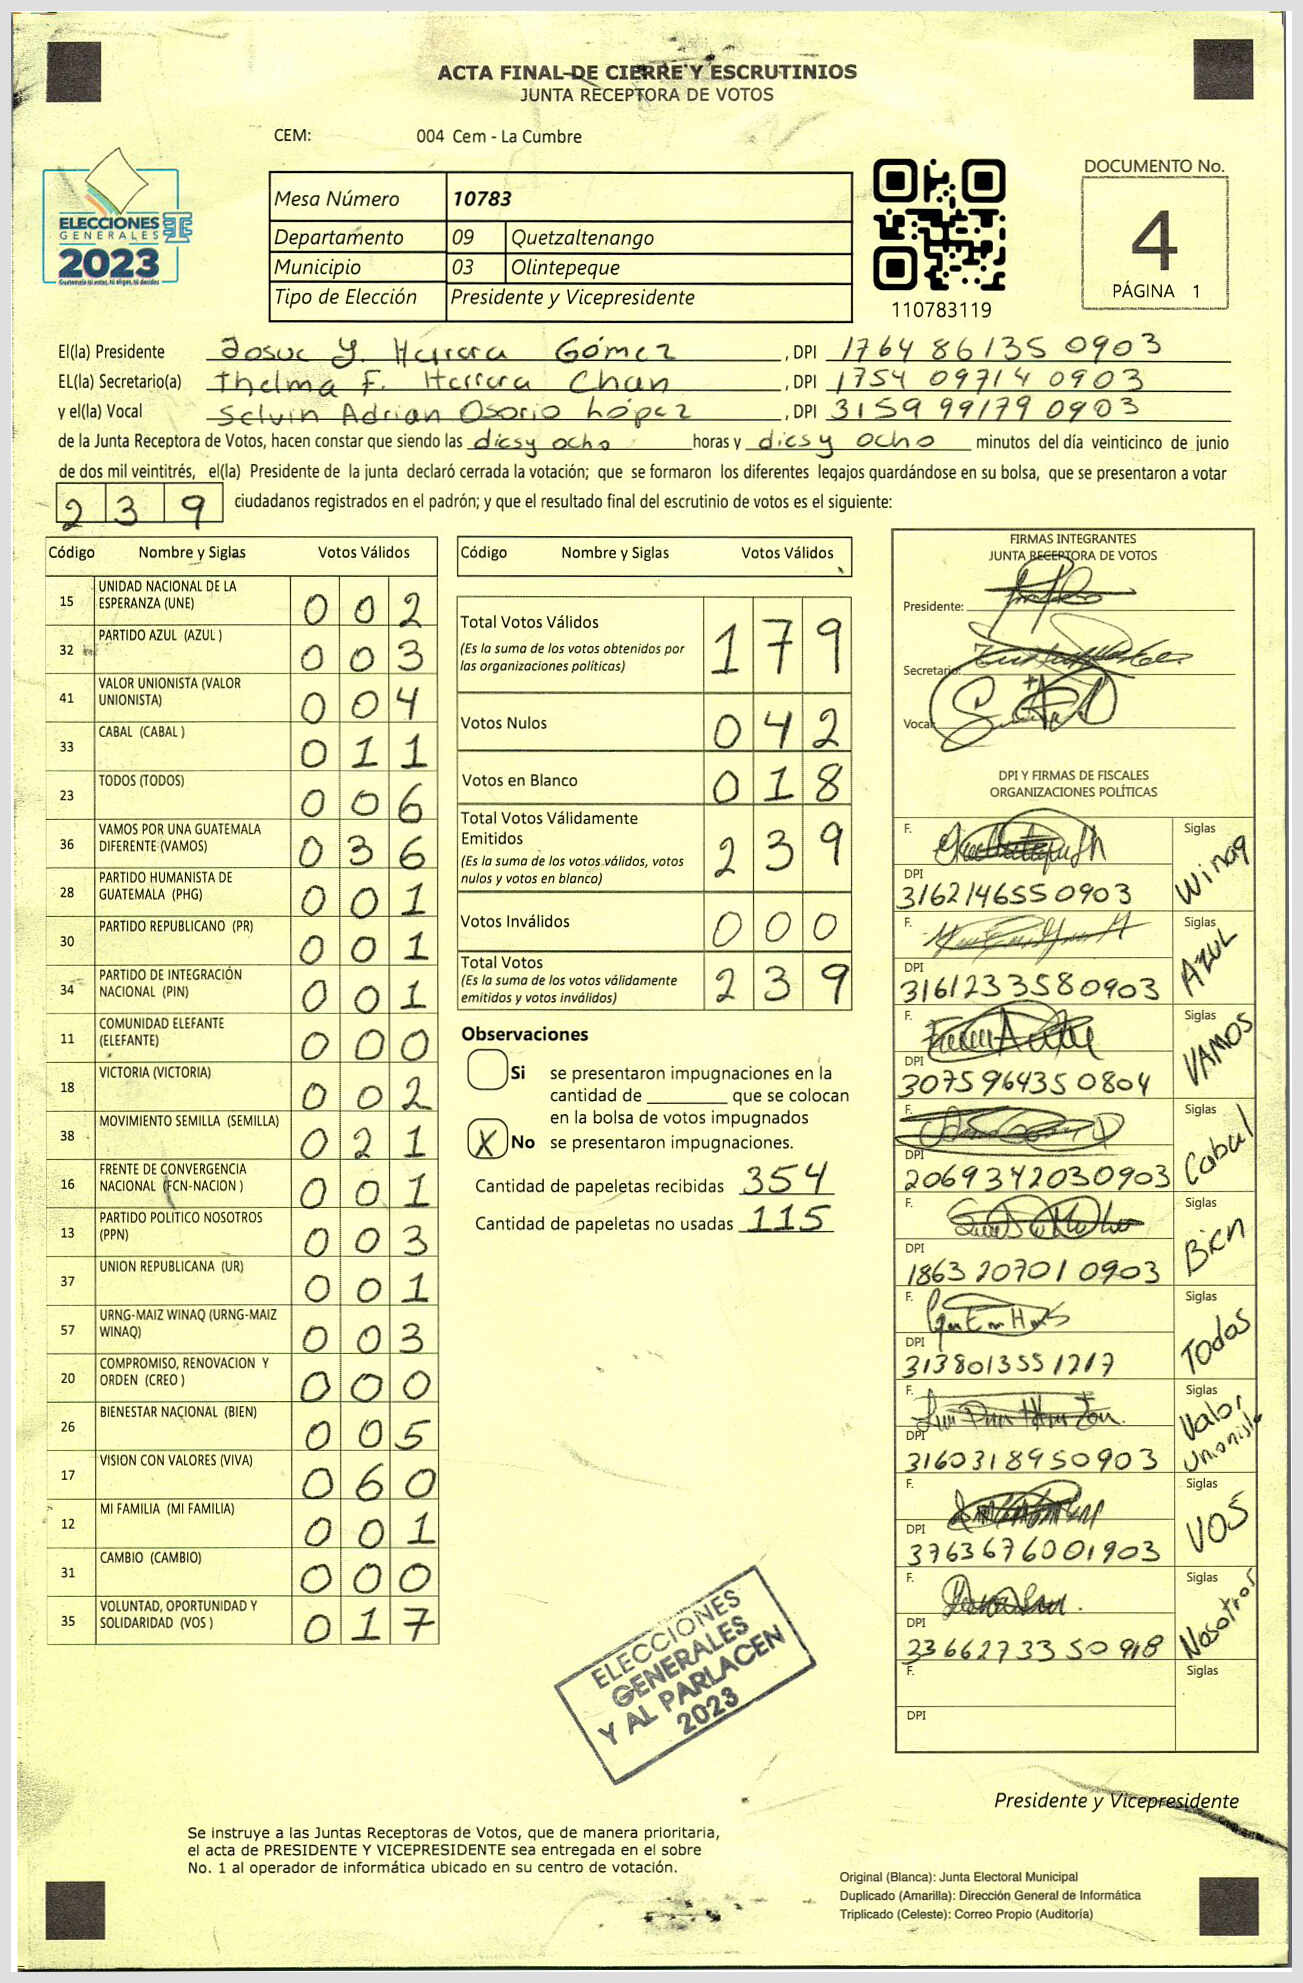 ACTA FINAL DE CIERRE Y ESCRUTINIOS
JUNTA RECEPTORA DE VOTOS
CEM: 004 Cem - La Cumbre
ELECCIONES
GENERALES
2023
Guatemala tú votas, tú eliges, tú decides
Mesa Número 10783
Departamento 09 Quetzaltenango
Municipio 03 Olintepeque
Tipo de Elección Presidente y Vicepresidente
110783119
DOCUMENTO No.
4
PÁGINA 1
El(la) Presidente Josue Y. Herrera Gómez, DPI 1764 86135 0903
EL(la) Secretario(a) Thelma F. Herrera Chan, DPI 1754 09714 0903
y el(la) Vocal Selvin Adrian Osorio López, DPI 3159 99179 0903
de la Junta Receptora de Votos, hacen constar que siendo las diesy ocho horas y diesy ocho minutos del día veinticinco de junio
de dos mil veintitrés, el(la) Presidente de la junta declaró cerrada la votación; que se formaron los diferentes legajos guardándose en su bolsa, que se presentaron a votar
239 ciudadanos registrados en el padrón; y que el resultado final del escrutinio de votos es el siguiente:
Código Nombre y Siglas Votos Válidos
15 UNIDAD NACIONAL DE LA
ESPERANZA (UNE) 002
32 PARTIDO AZUL (AZUL ) 003
41 VALOR UNIONISTA (VALOR
UNIONISTA) 004
33 CABAL (CABAL ) 011
23 TODOS (TODOS) 006
36 VAMOS POR UNA GUATEMALA
DIFERENTE (VAMOS) 036
28 PARTIDO HUMANISTA DE
GUATEMALA (PHG) 001
30 PARTIDO REPUBLICANO (PR) 001
34 PARTIDO DE INTEGRACIÓN
NACIONAL (PIN) 001
11 COMUNIDAD ELEFANTE
(ELEFANTE) 000
18 VICTORIA (VICTORIA) 002
38 MOVIMIENTO SEMILLA (SEMILLA) 021
16 FRENTE DE CONVERGENCIA
NACIONAL (FCN-NACION ) 001
13 PARTIDO POLITICO NOSOTROS
(PPN) 003
37 UNION REPUBLICANA (UR) 001
57 URNG-MAIZ WINAQ (URNG-MAIZ
WINAQ) 003
20 COMPROMISO, RENOVACION Y
ORDEN (CREO ) 000
26 BIENESTAR NACIONAL (BIEN) 005
17 VISION CON VALORES (VIVA) 060
12 MI FAMILIA (MI FAMILIA) 001
31 CAMBIO (CAMBIO) 000
35 VOLUNTAD, OPORTUNIDAD Y
SOLIDARIDAD (VOS ) 017
Código Nombre y Siglas Votos Válidos
Total Votos Válidos 179
(Es la suma de los votos obtenidos por
las organizaciones políticas)
Votos Nulos 042
Votos en Blanco 018
Total Votos Válidamente
Emitidos 239
(Es la suma de los votos válidos, votos
nulos y votos en blanco)
Votos Inválidos 000
Total Votos 239
(Es la suma de los votos válidamente
emitidos y votos inválidos)
Observaciones
Si se presentaron impugnaciones en la
cantidad de ________ que se colocan
en la bolsa de votos impugnados
X No se presentaron impugnaciones.
Cantidad de papeletas recibidas 354
Cantidad de papeletas no usadas 115
FIRMAS INTEGRANTES
JUNTA RECEPTORA DE VOTOS
Presidente:
Secretario:
Vocal:
DPI Y FIRMAS DE FISCALES
ORGANIZACIONES POLÍTICAS
F. Siglas Winaq
DPI 316214655 0903
F. Siglas AZUL
DPI 3161233580903
F. Siglas VAMOS
DPI 3075964350804
F. Siglas Cabal
DPI 2069342030903
F. Siglas Bien
DPI 1863 20701 0903
F. Siglas Todos
DPI 3138013551217
F. Siglas Valor
Unionista
DPI 3160318950903
F. Siglas VOS
DPI 3763676001903
F. Siglas Nosotros
DPI 336627335 0918
F. Siglas
DPI
ELECCIONES
GENERALES
Y AL PARLACEN
2023
Presidente y Vicepresidente
Se instruye a las Juntas Receptoras de Votos, que de manera prioritaria,
el acta de PRESIDENTE Y VICEPRESIDENTE sea entregada en el sobre
No. 1 al operador de informática ubicado en su centro de votación.
Original (Blanca): Junta Electoral Municipal
Duplicado (Amarilla): Dirección General de Informática
Triplicado (Celeste): Correo Propio (Auditoría)